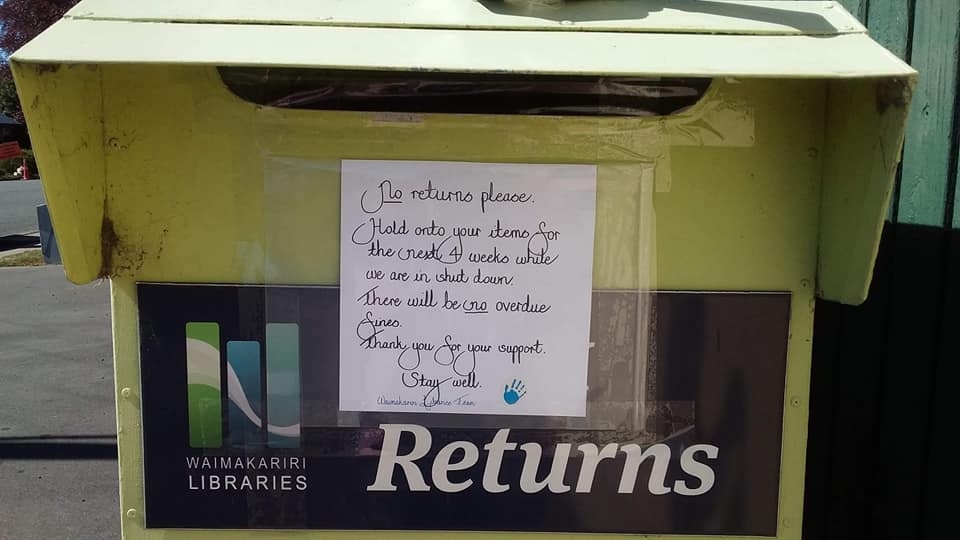 No returns please.
Hold onto your items for
the next 4 weeks while
we are in shut down.
There will be no overdue
fines.
Thank you for your support.
Stay well.
Waimakariri Libraries Team
WAIMAKARIRI
LIBRARIES
Returns